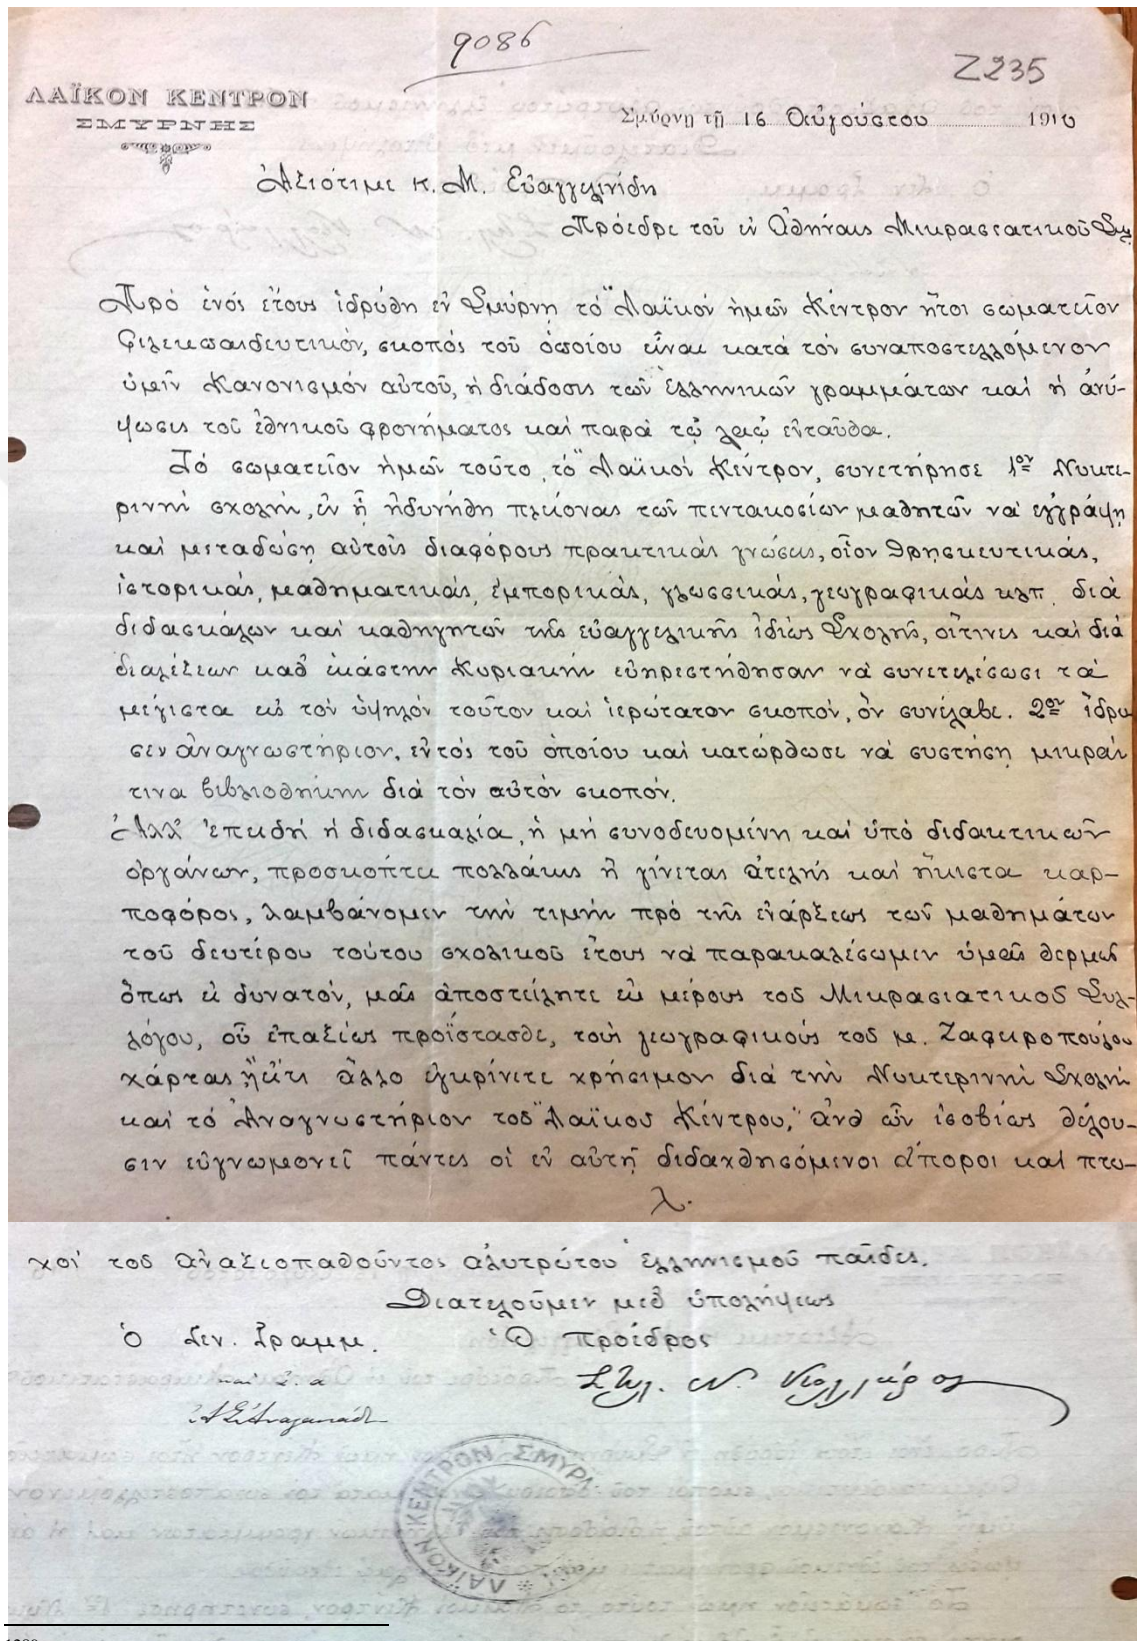 9086
Ζ235
ΛΑΪΚΟΝ ΚΕΝΤΡΟΝ
ΣΜΥΡΝΗΣ
Σμύρνῃ τῇ 16 Αὐγούστου 1910
Ἀξιότιμε κ. Μ. Εὐαγγελινίδη
Πρόεδρε τοῦ ἐν Ἀθήναις Μικρασιατικοῦ Συλ.
Πρό ἑνός ἔτους ἱδρύθη ἐν Σμύρνῃ τό "Λαϊκόν ἡμῶν Κέντρον ἤτοι σωματεῖον
Φιλεκπαιδευτικόν, σκοπός τοῦ ὁποίου εἶναι κατά τόν συναποστελλόμενον
ὑμῖν Κανονισμόν αὐτοῦ, ἡ διάδοσις τῶν ἑλληνικῶν γραμμάτων καί ἡ ἀνύ-
ψωσις τοῦ ἐθνικοῦ φρονήματος καί παρά τῷ λαῷ ἐνταῦθα.
Τό σωματεῖον ἡμῶν τοῦτο, τό "Λαϊκόν Κέντρον, συνετήρησε 1ον Νυκτε-
ρινήν σχολήν, ἐν ᾗ ἠδυνήθη πλείονας τῶν πεντακοσίων μαθητῶν νά ἐγγράψῃ
καί μεταδώσῃ αὐτοῖς διαφόρους πρακτικάς γνώσεις, οἷον θρησκευτικάς,
ἱστορικάς, μαθηματικάς, ἐμπορικάς, γλωσσικάς, γεωγραφικάς κλπ. διά
διδασκάλων καί καθηγητῶν τῆς εὐαγγελικῆς ἰδίως Σχολῆς, οἵτινες καί διά
διαλέξεων καθ' ἑκάστην Κυριακήν εὐηρεστήθησαν νά συνετελέσωσι τά
μέγιστα εἰς τόν ὑψηλόν τοῦτον καί ἱερώτατον σκοπόν, ὅν συνέλαβε. 2ον ἵδρυ-
σεν ἀναγνωστήριον, ἐντός τοῦ ὁποίου καί κατώρθωσε νά συστήσῃ μικράν
τινα βιβλιοθήκην διά τόν αὐτόν σκοπόν.
Ἀλλ' ἐπειδή ἡ διδασκαλία, ἡ μή συνοδευομένη καί ὑπό διδακτικῶν
ὀργάνων, προσκόπτει πολλάκις ἤ γίνεται ἀτελής καί ἥκιστα καρ-
ποφόρος, λαμβάνομεν τήν τιμήν πρό τῆς ἐνάρξεως τῶν μαθημάτων
τοῦ δευτέρου τούτου σχολικοῦ ἔτους νά παρακαλέσωμεν ὑμᾶς θερμῶς
ὅπως εἰ δυνατόν, μᾶς ἀποστείλητε ἐκ μέρους τοῦ Μικρασιατικοῦ Συλ-
λόγου, οὗ ἐπαξίως προΐστασθε, τούς γεωγραφικούς τοῦ κ. Ζαφειροπούλου
χάρτας ἤ εἴτι ἄλλο ἐγκρίνετε χρήσιμον διά τήν Νυκτερινήν Σχολήν
καί τό Ἀναγνωστήριον τοῦ "Λαϊκοῦ Κέντρου," ἀνθ' ὧν ἰσοβίως θέλου-
σιν εὐγνωμονεῖ πάντες οἱ ἐν αὐτῇ διδαχθησόμενοι ἄποροι καί πτω-
λ.
χοί τοῦ ἀναξιοπαθοῦντος ἀλυτρώτου ἑλληνισμοῦ παῖδες.
Διατελοῦμεν μεθ' ὑπολήψεως
Ὁ Γεν. Γραμμ. Ὁ πρόεδρος
ΛΑΪΚΟΝ ΚΕΝΤΡΟΝ ΣΜΥΡΝ